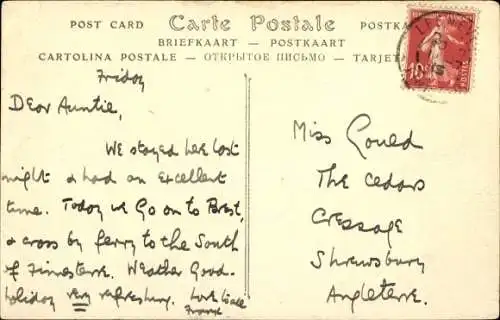 POST CARD Carte Postale POSTKA
BRIEFKAART — POSTKAART
CARTOLINA POSTALE — ОТКРЫТОЕ ПИСЬМО — TARJET
POSTES
10
Friday
Dear Auntie,
We stayed here last
night & had an Excellent
time. Today we Go on to Brest,
& cross by ferry to the South
of Finesterre. Weather Good.
holiday very refreshing. Love to all
Frank
Miss Gould
The Cedars
Cressage
Shrewsbury
Angleterre.